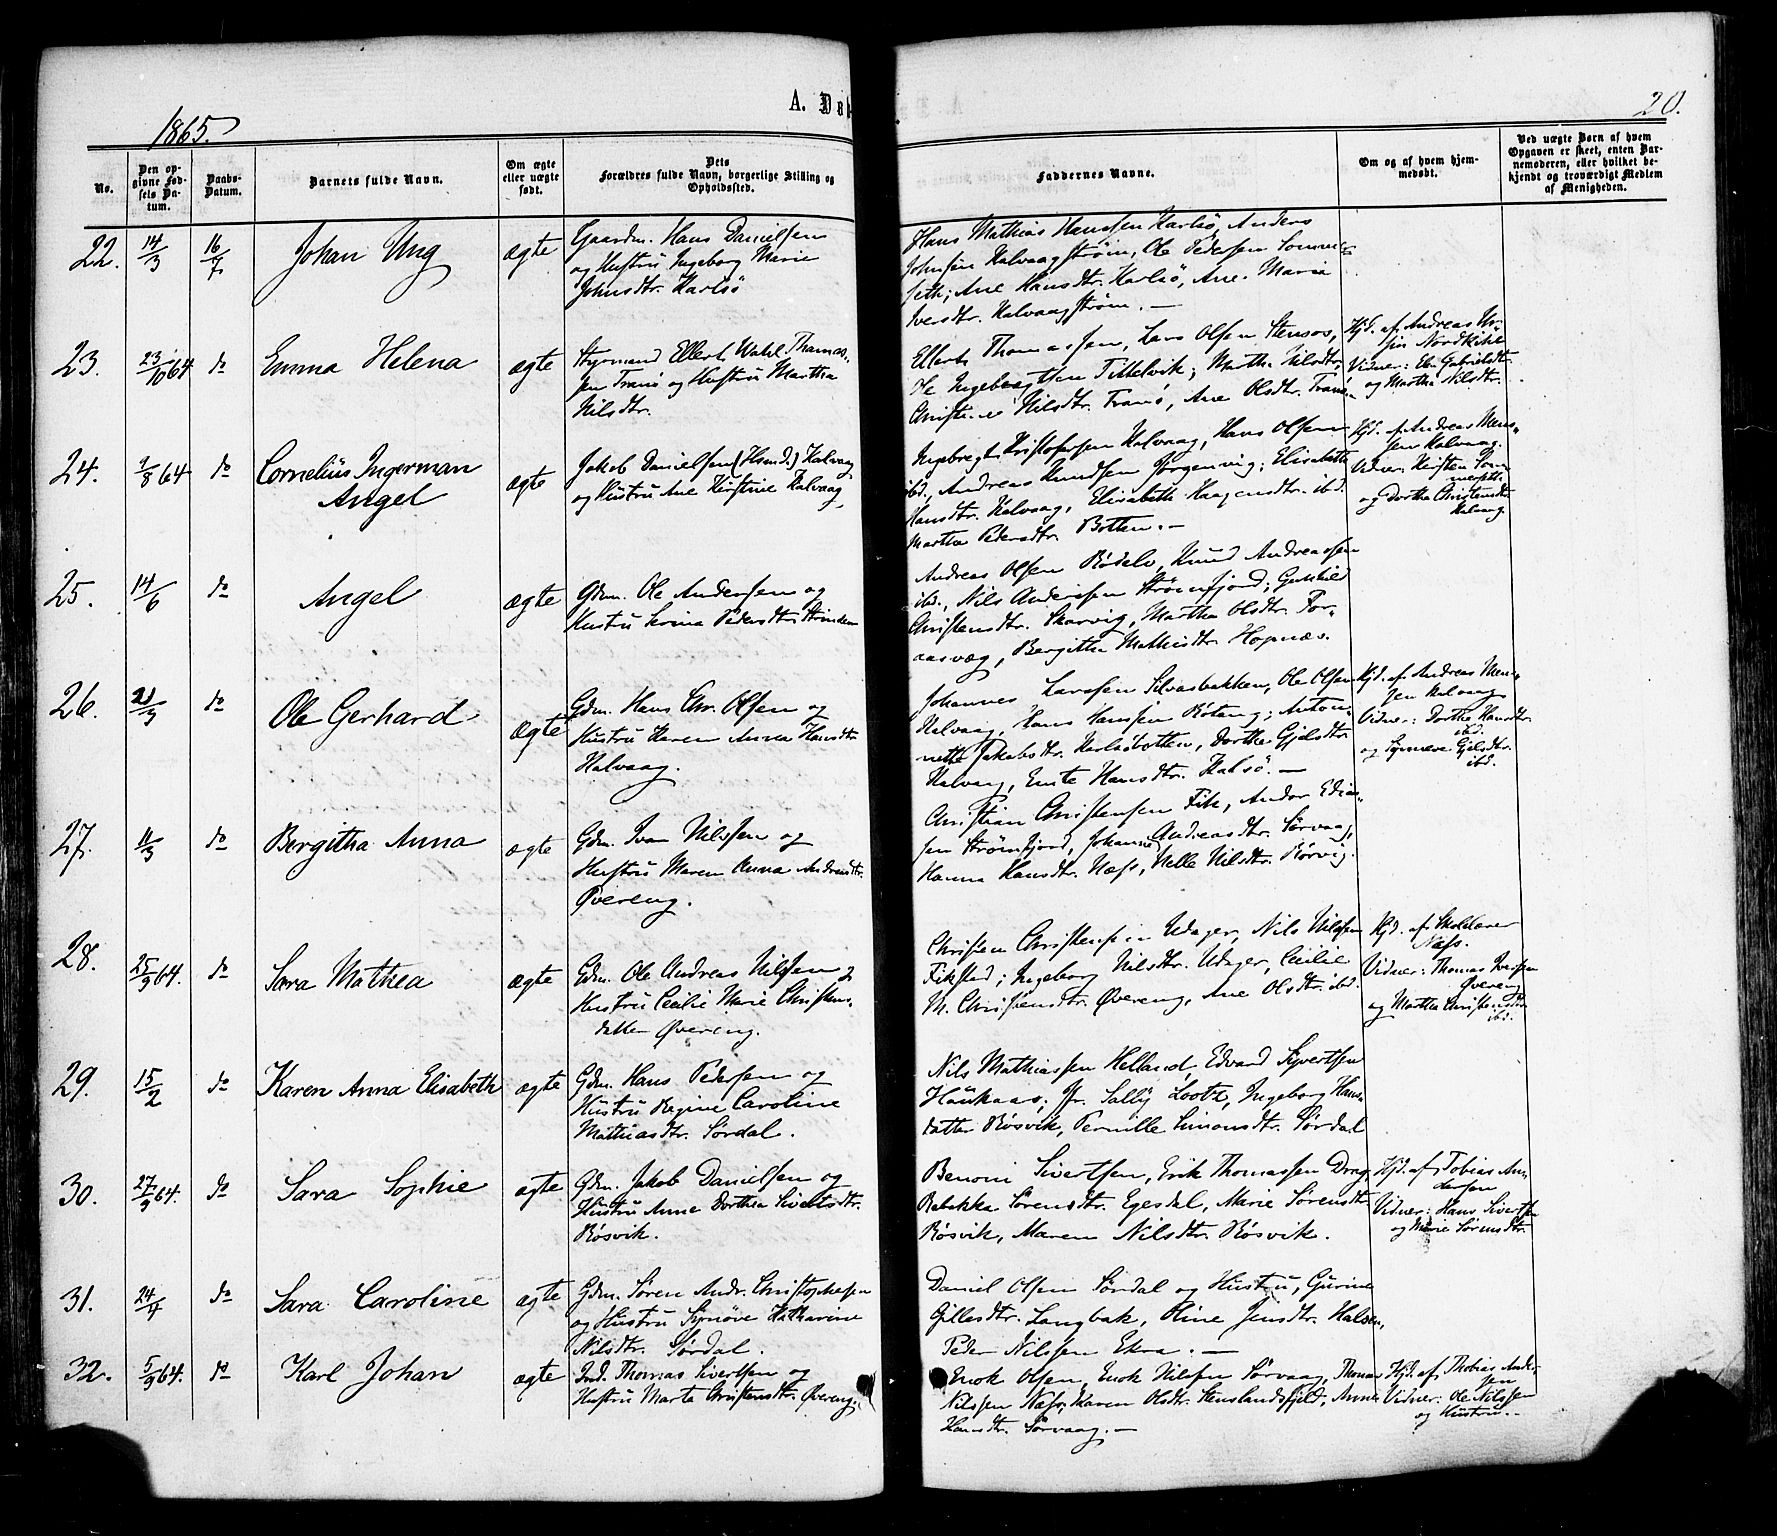 1865.
A. Døb
20.
No.
Den opgivne Fødsels Datum.
Daabs-Datum.
Barnets fulde Navn.
Om ægte eller uægte født.
Dets Forældres fulde Navn, borgerlige Stilling og Opholdssted.
Faddernes Navne.
Om og af hvem hjemmedøbt.
Ved uægte Barn af hvem Opgaven er skeet, enten Barnemoderen, eller hvilket bekjendt og troværdigt Medlem af Menigheden.
22. 14/3 16/7 Johan Ung ægte
Gaardm. Hans Danielsen
og Hustru Ingeborg Marie
Johnsdtr. Karlsö
Hans Mathias Hanssen Karlsö, Anders
Johnsen Kalvaagström, Ole Pedersen Sommer-
seth; Ane Hansdtr. Karlsö, Ane Marie
Iversdtr. Kalvaagström. —
23. 23/10 64 do Emma Helena ægte
Styrmand Ellert Wahl Thomas-
sen Tranö og Hustru Martha
Nilsdtr.
Ellert Thomassen, Lars Olsen Stensos,
Ole Ingebrigtsen Tittelvik; Martha Nilsdtr.
Nilsdtr. Tranö, Ane Olsdtr. Tranö
Hjd. af Andreas
Vidner: Gabrielsdtr.
og Martha Nilsdtr.
24. 9/8 64 do Cornelius Ingerman
Angel
ægte
Jakob Danielsen (Hsmd.) Kalvaag
og Hustru Ane Kirstine Kalvaag
Ingebregt Kristofersen Kalvaag, Hans Olsen
ibd., Andreas Knudsen Jörgenvig; Elisabeth
Hansdtr. Kalvaag, Elisabeth Haagensdtr. ibd.
Martha Pedersdtr. Botten. —
Hjd. af Andreas Mons-
sen Kalvaag.
Vidner: Kirsten Som-
merseth
og Dorthe Christensdtr.
Kalvaag.
25. 14/6 do Angel ægte
Gdm. Ole Andersen og
Hustru Serina Pedersdtr.
Andreas Olsen Rödelv, Knud Andreassen
ibd., Nils Anderssen Strömfjord; Gunhild
Christensdtr. Skarvig, Martha Olsdtr. For-
aasvæg, Bergitha Mathisdtr. Hopnæs.
26. 21/3 do Ole Gerhard ægte
Gdm. Hans Chr. Olsen og
Hustru Karen Anna Hansdtr.
Kalvaag.
Johannes Larssen Silvasbakken, Ole Olsen
Kalvaag, Hans Hanssen Rötang; Anton-
nette Jakobsdtr. Karlsöbotten, Dorthe Gjelsdtr.
Kalvaag, Hansdtr. Kalsö. —
Hjd. af Andreas Mons-
sen Kalvaag
Vidner: Dorthe Hansdtr.
ibd.
og Synneve Gjelsdtr.
ibd.
27. 11/3 do Bergitha Anna ægte
Gdm. Ivar Nilssen og
Hustru Maren Anna Andreasdtr.
Øvereng.
Christian Christensen Fik, Andor
sen Strömfjord, Johanne Andreasdtr. Sörvaag,
Hanna Hansdtr. Næss, Nelle Nilsdtr. Rörvig.
28. 25/9 64. do Sara Mathea ægte
Gdm. Ole Andreas Nilssen &
Hustru Cecilie Marie Christens-
datter Øvereng.
Christen Christensen Udager, Nils Nilssen
Fikstad; Ingeborg Nilsdtr. Udager, Cecilie
M. Christensdtr. Øvereng, Ane Olsdtr. ibd.
Hjd. af Skolelærer
Næss.
Vidner: Thomas Iversen
Øvereng
og Martha Christensdtr.
ibd.
29. 15/2 do Karen Anna Elisabeth ægte
Gdm. Hans Pedersen og
Hustru Regine Caroline
Mathiasdtr. Sördal.
Nils Mathiassen Helland, Edvard Syvertsen
Haukaas; Jfr. Sally Lootz, Ingeborg Hans-
datter Rösvik, Pernille Simonsdtr. Sördal
30. 27/9 64. do Sara Sophie ægte
Gdm. Jakob Danielsen og
Hustru Anne Dorthea Sivertsdtr.
Rösvik.
Benoni Sivertsen, Erik Thomassen Drag,
Rebekka Sörensdtr. Egesdal, Marie Sörensdtr.
Rösvik, Maren Nilsdtr. Rösvik.
Hjd. af Tobias An-
dersen
Vidner: Hans Sivertsen
og Marie Sörensdtr.
31. 24/4 do Sara Caroline ægte
Gdm. Sören Andr. Christophersen
og Hustru Synöve Katharine
Nilsdtr. Sördal.
Daniel Olsen Sördal og Hustru, Gurine
Gillesdtr. Langbak, Oline Jensdtr. Halsen,
Peder Nilssen Ekra. —
32. 5/9 64. do Karl Johan ægte
Ind. Thomas Sivertsen og
Hustru Marta Christensdtr. Øvereng.
Enok Olsen, Enok Nilsen Sörvaag, Thomas
Nilssen Næss, Karen Olsdtr. Stenslandsfjeld, Anne
Hansdtr. Sörvaag. —
Hjd. af Thobias Ander-
sen
Vidner: Ole Nilssen
og Hustru. —